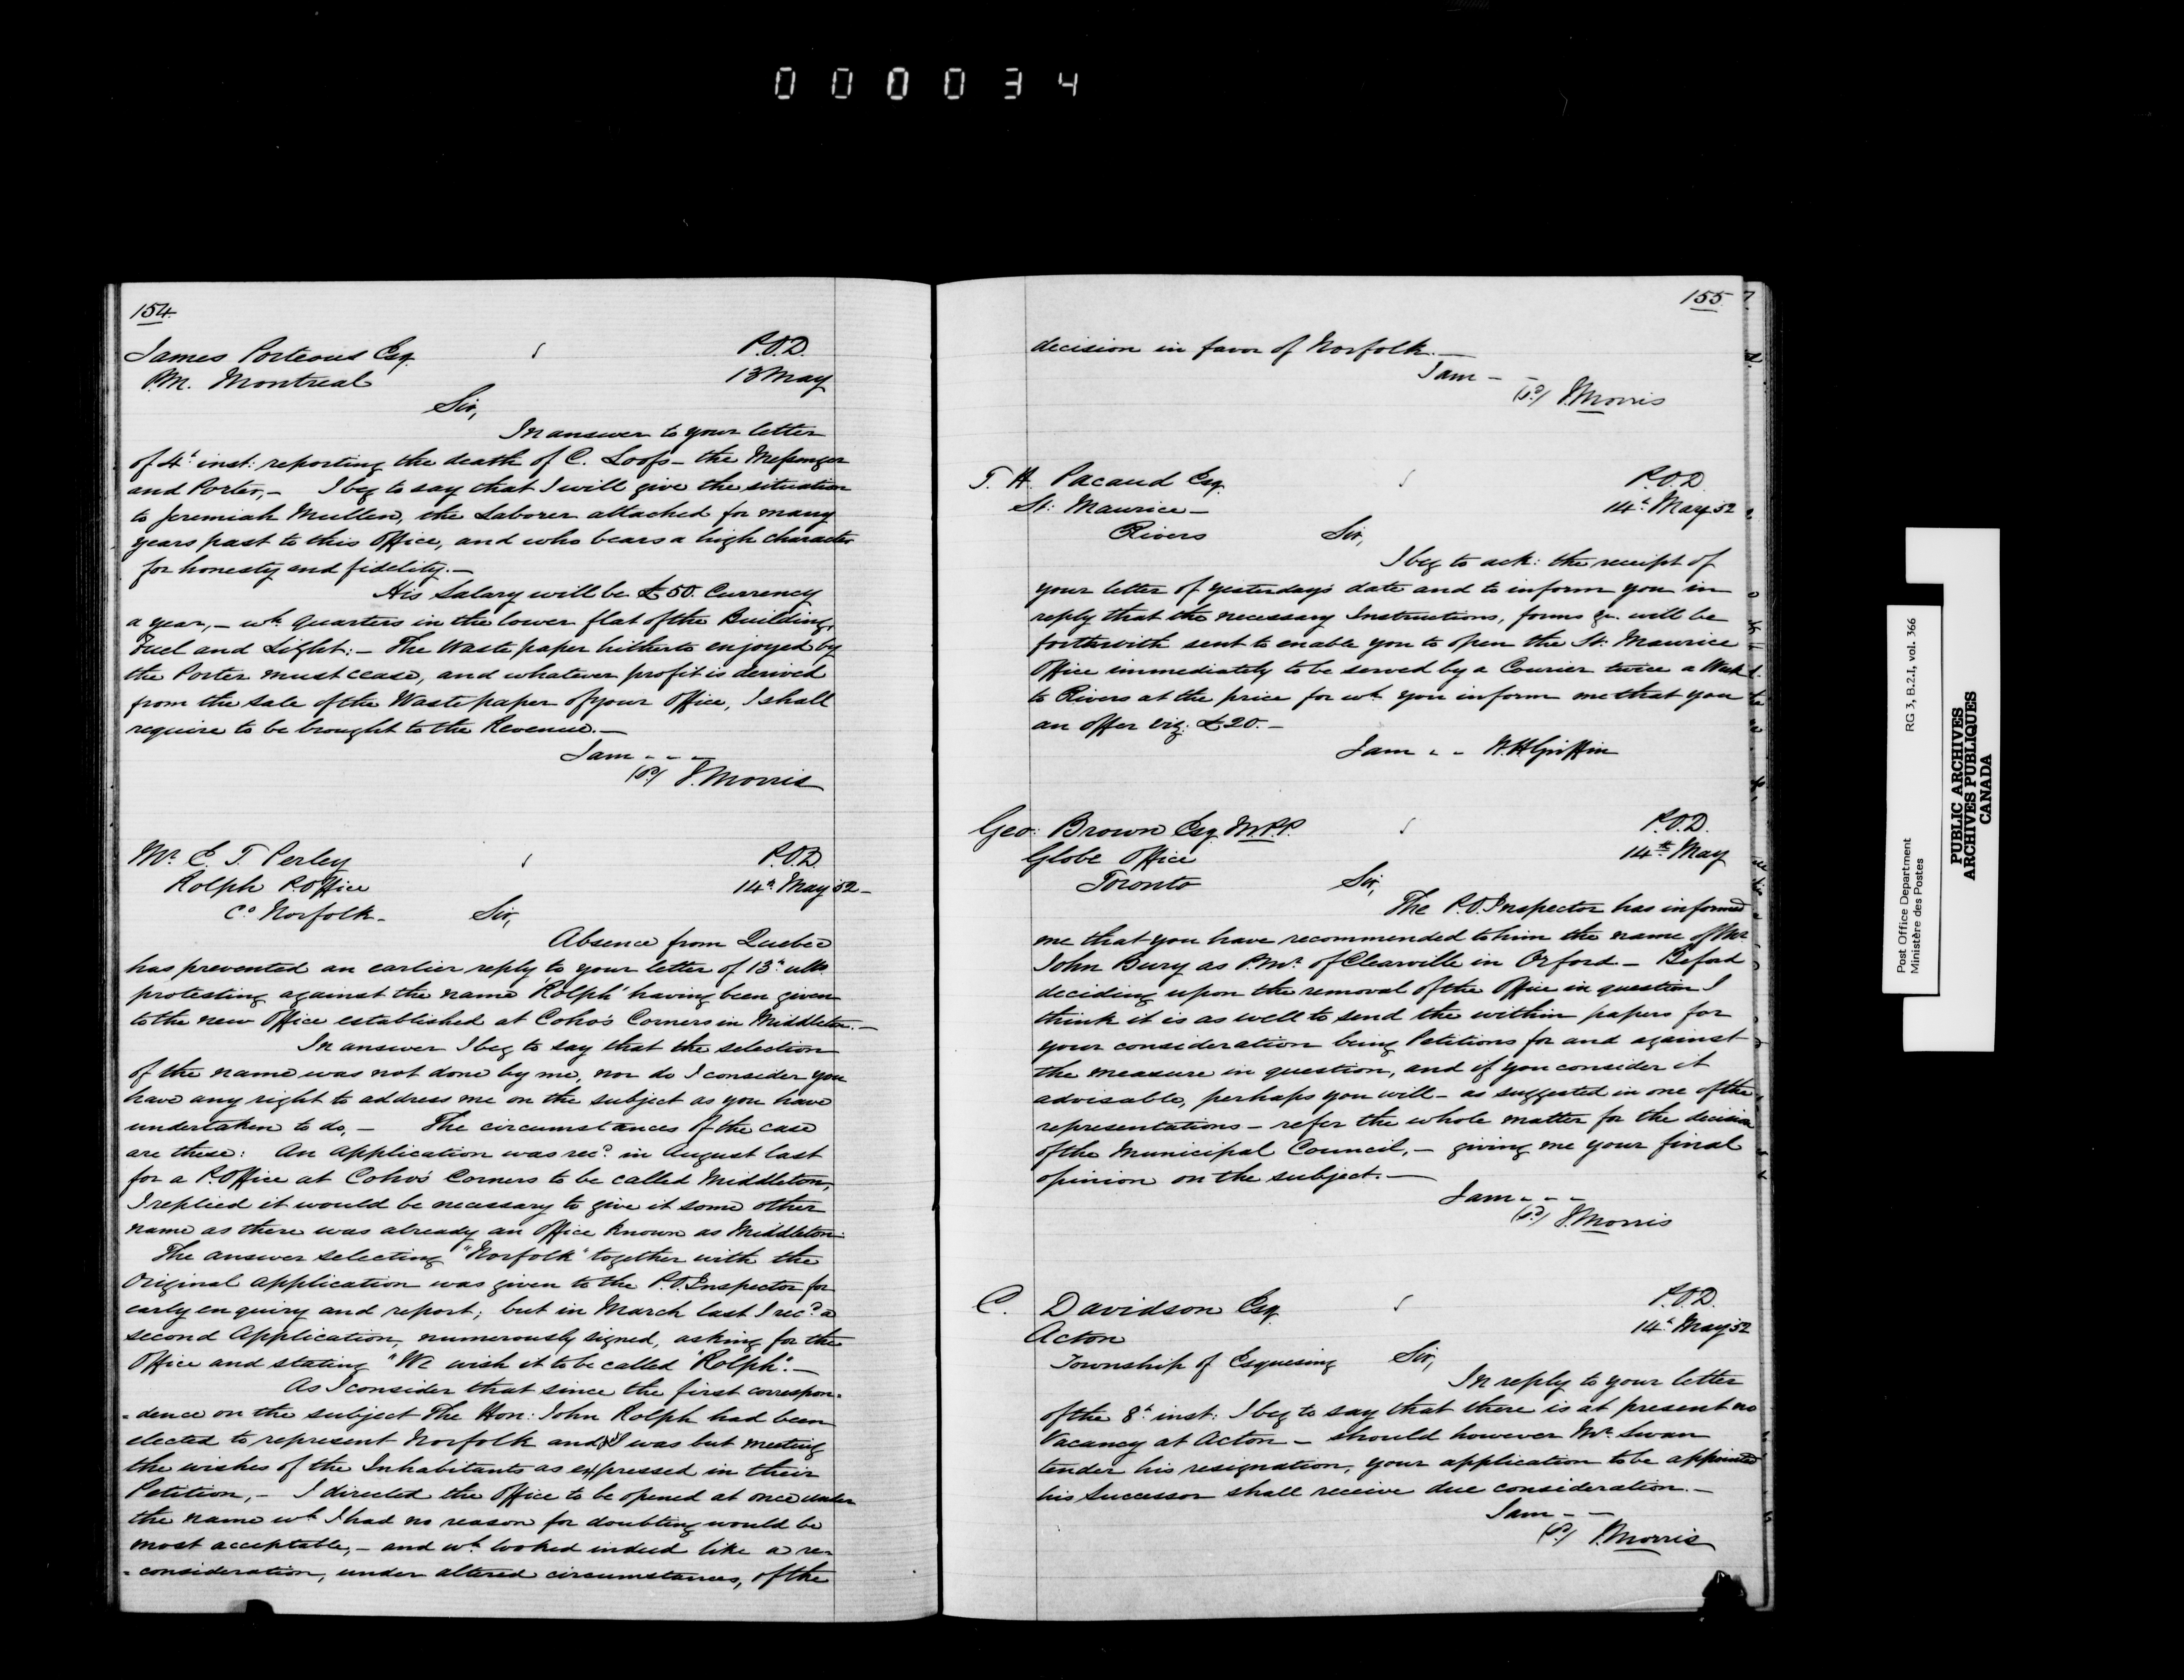 000034
154.
James Porteous Esq. P.O.D.
P.M. Montreal 13 May
Sir,
In answer to your letter
of 4th inst: reporting the death of C. Loofs - the Messenger
and Porter, - I beg to say that I will give the situation
to Jeremiah Mullen, the Laborer attached for many
years past to this Office, and who bears a high character
for honesty and fidelity. -
His Salary will be £50. Currency
a year, - wh quarters in the lower flat of the Building,
Fuel and Light: - The Waste paper hitherto enjoyed by
the Porter must cease, and whatever profit is derived
from the sale of the Waste paper of your Office, I shall
require to be brought to the Revenue. -
I am - - -
(sd) J. Morris
Mr. E. T. Perley P.O.D.
Rolph P. Office 14th May 52 -
Co. Norfolk - Sir,
Absence from Quebec
has prevented an earlier reply to your letter of 13th ulto
protesting against the name "Rolph" having been given
to the new Office established at Coho's Corners in Middleton. -
In answer I beg to say that the selection
of the name was not done by me, nor do I consider you
have any right to address me on the subject as you have
undertaken to do, - The circumstances of the case
are these: An application was recd. in August last
for a P. Office at Coho's Corners to be called Middleton,
I replied it would be necessary to give it some other
name as there was already an Office known as Middleton.
The answer selecting "Norfolk" together with the
Original application was given to the P.O. Inspector for
early enquiry and report; but in March last I recd. a
second Application, numerously signed, asking for the
Office and stating "We wish it to be called "Rolph". -
As I consider that since the first correspon=
=dence on the subject The Hon: John Rolph had been
elected to represent Norfolk and I was but meeting
the wishes of the Inhabitants as expressed in their
Petition, - I directed the Office to be opened at once under
the name wh I had no reason for doubting would be
most acceptable, - and wh looked indeed like a re=
=consideration, under altered circumstances, of the
155
decision in favor of Norfolk. -
I am - -
(sd) J. Morris
T. H. Pacaud Esq. P.O.D
St: Maurice - 14th May 52
Rivers Sir,
I beg to ack: the receipt of
your letter of yesterday's date and to inform you in
reply that the necessary Instructions, forms &c. will be
forthwith sent to enable you to open the St: Maurice
Office immediately to be served by a Courier twice a Week
to Rivers at the price for wh you inform me that you
an offer viz: £20. -
I am - - W.H Griffin
Geo: Brown Esq. M.P.P. P.O.D.
Globe Office 14th May
Toronto Sir,
The P.O. Inspector has informed
me that you have recommended to him the name of Mr
John Bury as P.Mr. of Clearville in Orford - Before
deciding upon the removal of the Office in question I
think it is as well to send the within papers for
your consideration being Petitions for and against
the measure in question, and if you consider it
advisable, perhaps you will - as suggested in one of the
representations - refer the whole matter for the decision
of the Municipal Council, - giving me your final
opinion on the subject. -
I am - - -
(sd) J. Morris
C. Davidson Esq P.O.D.
Acton 14th May 52
Township of Esquesing Sir,
In reply to your letter
of the 8th inst: I beg to say that there is at present no
Vacancy at Acton - should however Mr. Swan
tender his resignation, your application to be appointed
his Successor shall receive due consideration. -
I am - -
(sd) J. Morris
Post Office Department RG 3, B.2.I, vol. 366
Ministère des Postes
PUBLIC ARCHIVES
ARCHIVES PUBLIQUES
CANADA